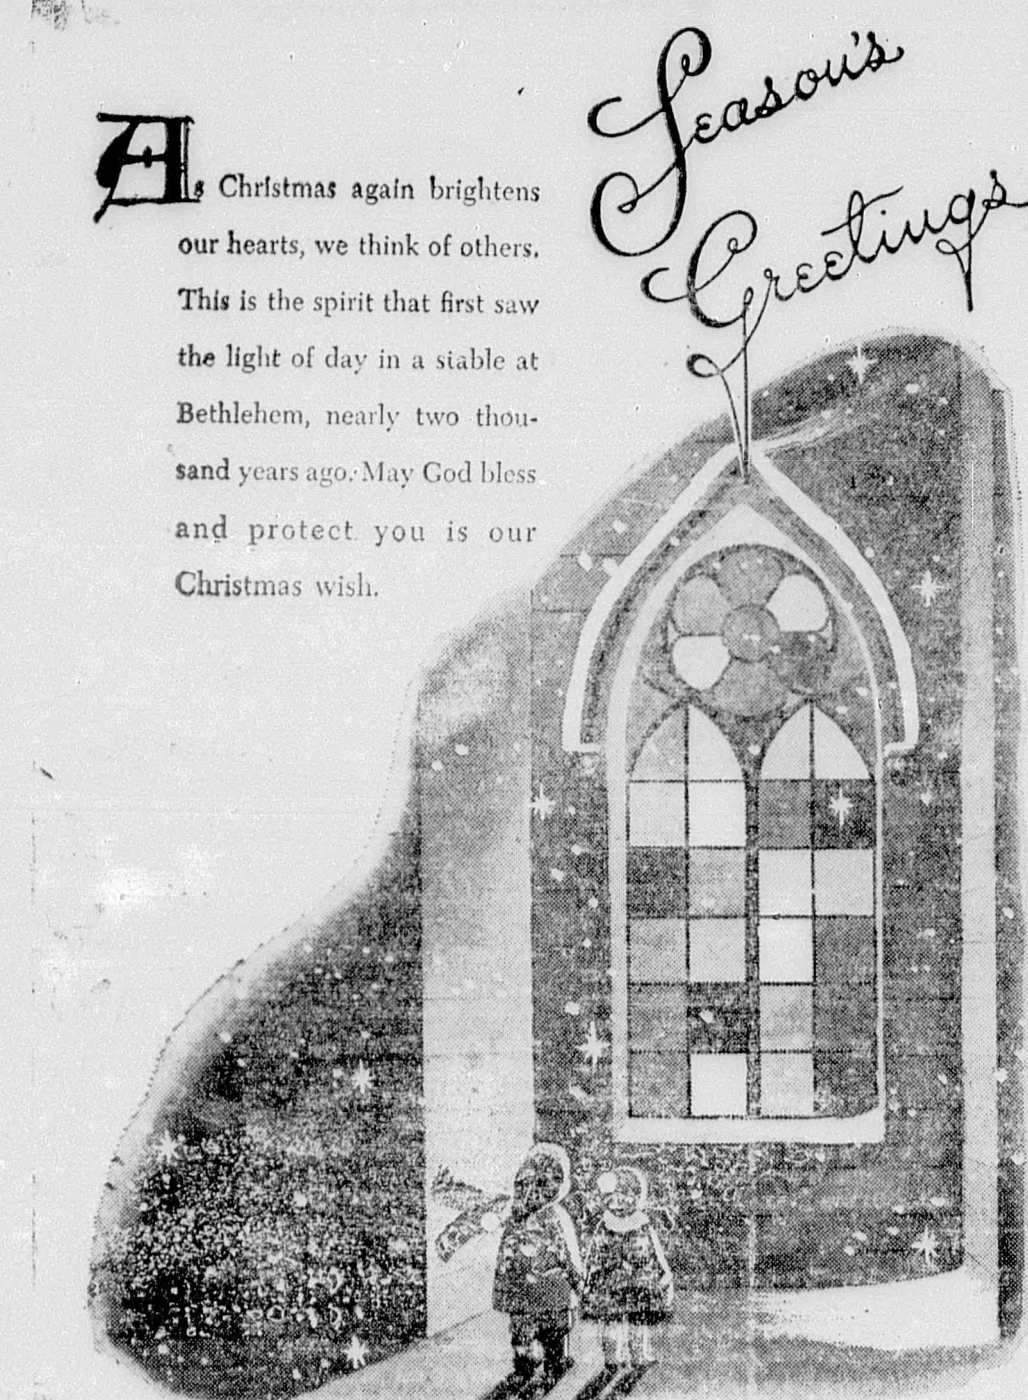 Season's
Greetings
As Christmas again brightens
our hearts, we think of others.
This is the spirit that first saw
the light of day in a stable at
Bethlehem, nearly two thou-
sand years ago. May God bless
and protect you is our
Christmas wish.